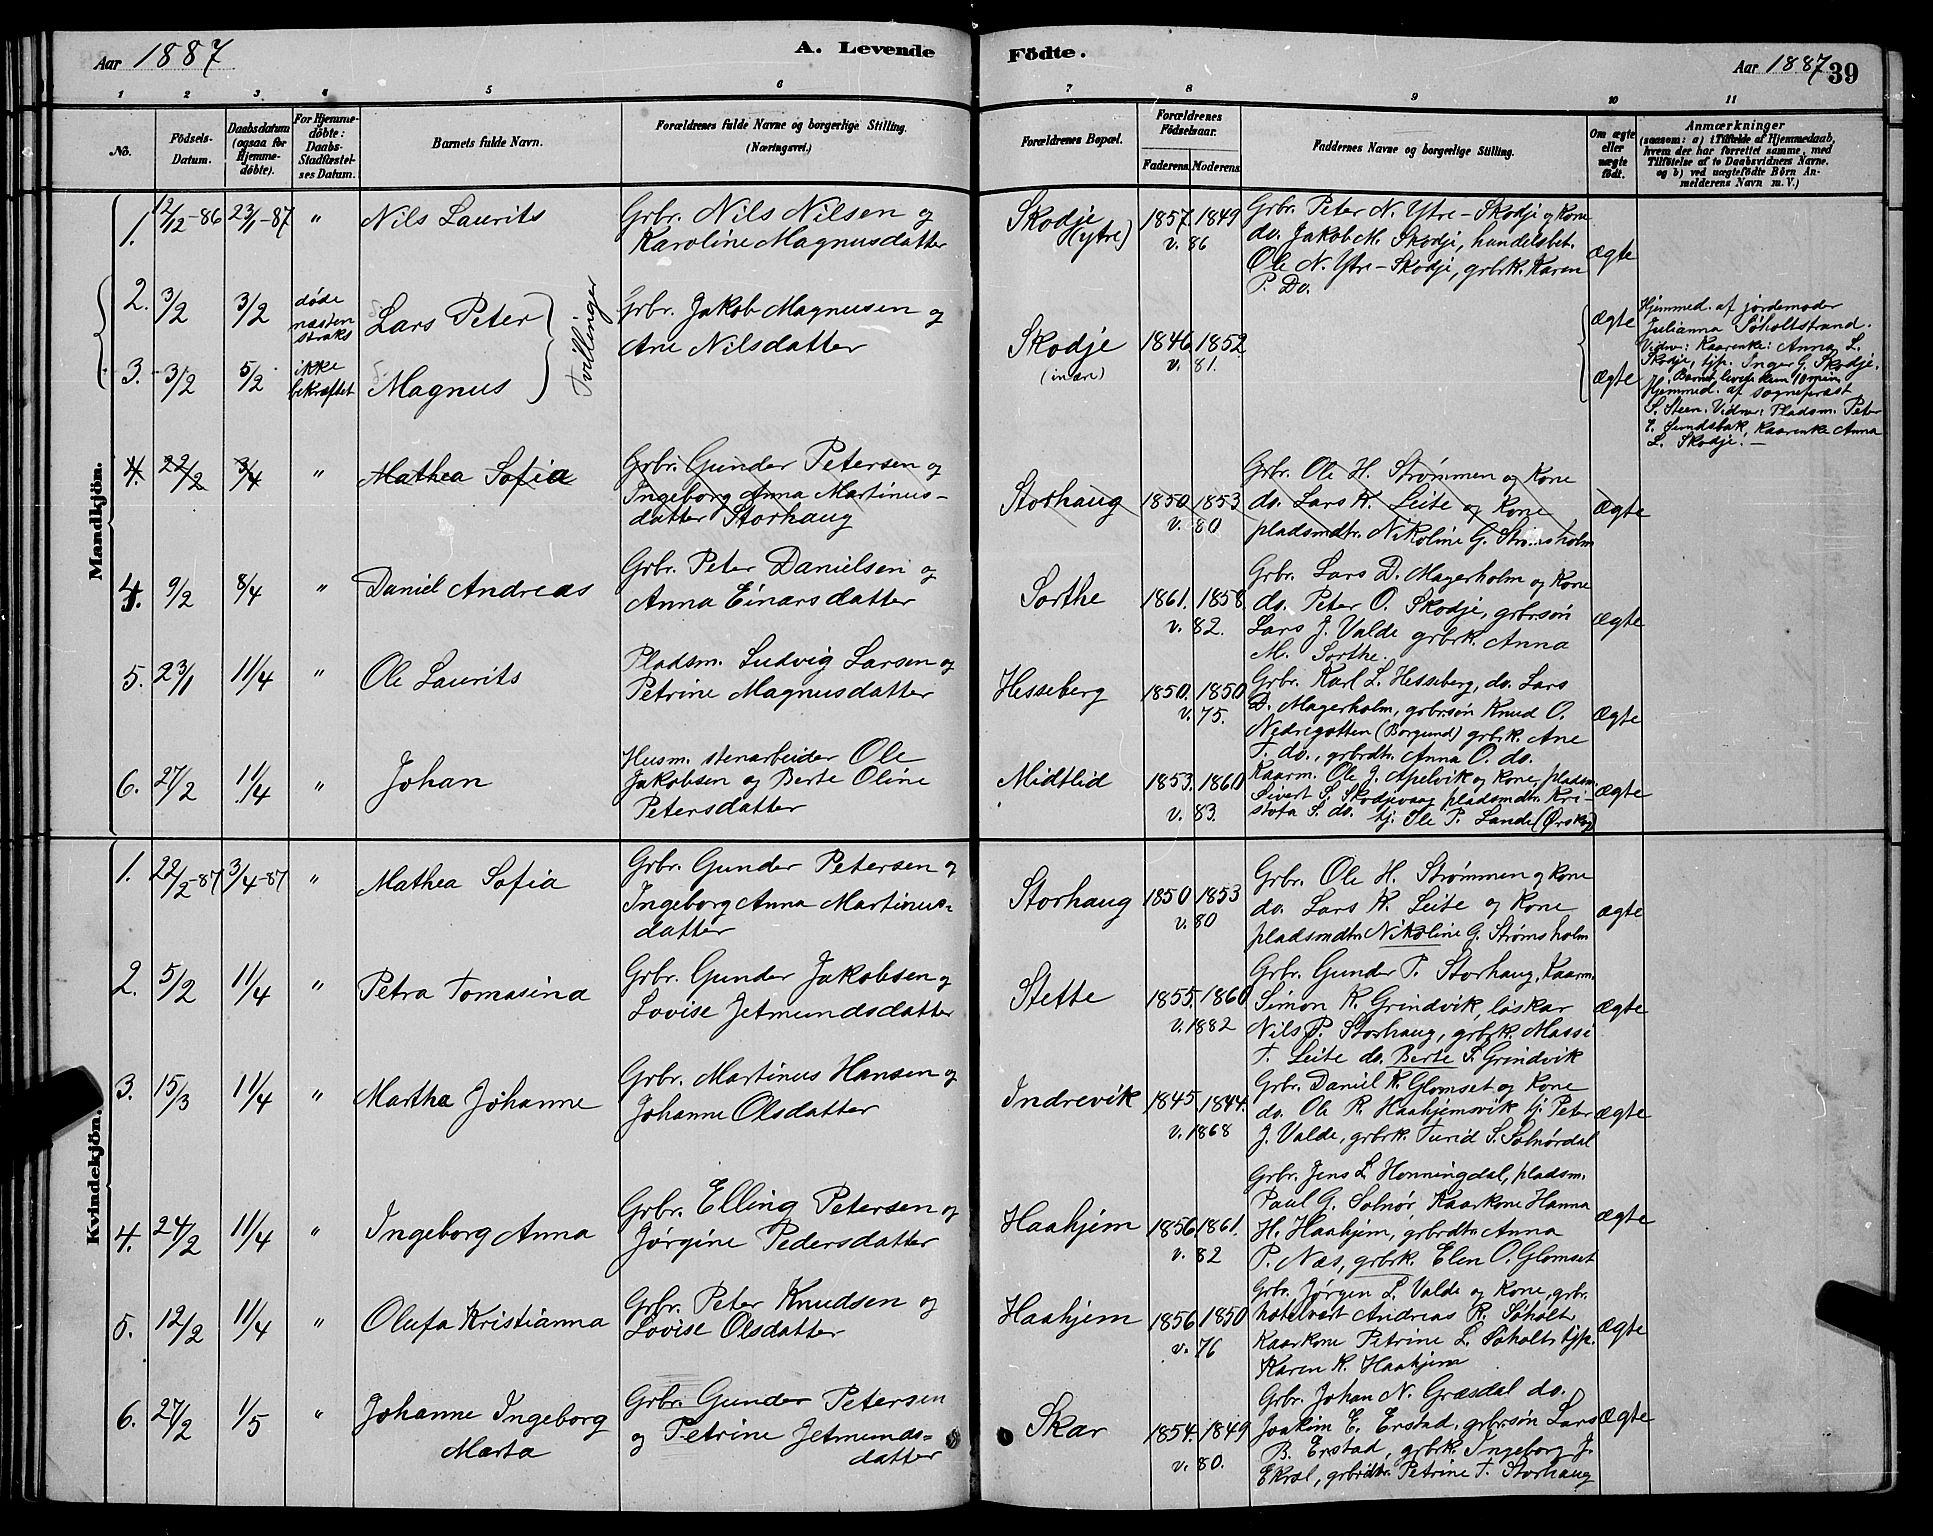 Aar 1887
A. Levende
Födte.
Aar 1887
39
1 2 3 4 5 6 7 8 9 10 11
No.
Födsels-
Datum.
Daabsdatum
(ogsaa for
Hjemme-
döbte).
For Hjemme-
döbte:
Daabs-
Stadfæstel-
ses Datum.
Barnets fulde Navn.
Forældrenes fulde Navne og borgerlige Stilling.
(Næringsvei.)
Forældrenes Bopæl.
Forældrenes
Födselsaar.
Faderens.
Moderens.
Faddernes Navne og borgerlige Stilling.
Om ægte
eller
uægte
födt.
Anmærkninger
(saasom: a) i Tilfælde af Hjemmedaab,
hvem der har forrettet samme, med
Tilföielse af to Daabsvidners Navne.
og b) ved uægtefödte Börn An-
melderens Navn m. V.)
Mandkjön.
1. 12/12-86 23/1-87 " Nils Laurits
Grbr. Nils Nilsen og
Karoline Magnusdatter
Skodje
(ytre)
1857 1849
v. 86
Grbr. Peter N. Ytre-Skodje og Kone
do. Jakob M. Skodje, handelsbet.
Ole N. Ytre-Skodje, grbrk. Karen
P. Do.
ægte
2. 3/2 3/2
døde
næsten
straks
Lars Peter
3. 3/2 5/2
ikke
bekræftet
Magnus
Tvillinger
Grbr. Jakob Magnusen og
Ane Nilsdatter
Skodje
(indre)
1846 1852
v. 81.
ægte
ægte
Hjemmed. af jordemoder
Julianna Søholtstrand.
Vidner: Kaarenke: Anna L.
Skodje, tjp. Inger G. Skodje.
Barnet levede kun 10 min.
Hjemmed. af sogneprest
S. Steen. Vidner: Pladsm. Peter
E. Sundsbak, Kaarenke Anna
L. Skodje.—
4. 22/2 3/4 " Mathea Sofia
Grbr. Gunder Petersen og
Ingeborg Anna Martinus-
datter Storhaug
Storhaug
1850 1853
v. 80
Grbr. Ole H. Strømmen og Kone
do. Lars K. Leite og Kone
pladsmdtr. Nikoline G. Strømsholm
ægte
4. 9/2 8/4 " Daniel Andreas
Grbr. Peter Danielsen og
Anna Einarsdatter
Sorthe
1861. 1858
v. 82.
Grbr. Lars D. Magerholm og Kone
do. Peter O. Skodje, grbrsøn
Lars J. Valde grbrk. Anna
M. Sorthe.
ægte
5. 23/1 11/4 " Ole Laurits
Pladsm. Ludvig Larsen og
Petrine Magnusdatter
Hesseberg
1850. 1850
v. 75.
Grbr. Karl L. Hesseberg, do. Lars
D. Magerholm, grbrsøn Knud O.
Nedregotten (Borgund) grbrk. Ane
T. do., grbrdtr. Anna O. do.
ægte
6. 27/2 11/4 " Johan
Husm. stenarbeider Ole
Jakobsen og Berte Oline
Petersdatter
Midtlid
1853. 1860
v. 83.
Kaarm. Ole J. Apelvik og Kone, pladsm.
Sivert S. Skodjevaag pladsmdtr. Kri-
stofa S. do. tj. Ole P. Lande (Ørskog)
ægte
Kvindekjön.
1. 22/2-87 3/4-87 " Mathea Sofia
Grbr. Gunder Petersen og
Ingeborg Anna Martinus-
datter
Storhaug
1850 1853
v. 80
Grbr. Ole H. Strømmen og Kone
do. Lars K. Leite og Kone
pladsmdtr. Nikoline G. Strømsholm
ægte
2. 5/2 11/4 " Petra Tomasina
Grbr. Gunder Jakobsen og
Lovise Jetmundsdatter
Stette
1855. 1860
v. 1882
Grbr. Gunder P. Storhaug, Kaarm.
Simon K. Grindvik, løskar
Nils P. Storhaug, grbrk. Massi
T. Leite do. Berte S. Grindvik
ægte
3. 15/3 11/4 " Martha Johanne
Grbr. Martinus Hansen og
Johanne Olsdatter
Indrevik
1845 1844.
v. 1868
Grbr. Daniel K. Glomset og Kone
do. Ole R. Haahjemsvik tj. Peter
J. Valde, grbrk. Turid S. Solnørdal
ægte
4. 24/2 11/4 " Ingeborg Anna
Grbr. Elling Petersen og
Jørgine Pedersdatter
Haahjem
1856 1861.
v. 82
Grbr. Jens L. Honningdal, pladsm.
Paul G. Solnør Kaarkone Hanna
H. Haahjem, grbrdtr. Anna
P. Næs, grbrk. Elen O. Glomset
ægte
5. 12/2 11/4 " Olufa Kristianna
Grbr. Peter Knudsen og
Lovise Olsdatter
Haahjem
1856 1850
v. 76
Grbr. Jørgen L. Valde og Kone, grbr.
hotelvært Andreas R. Søholt,
Kaarkone Petrine L. Søholt, tjp.
Karen K. Haahjem
ægte
6. 27/2 1/5 " Johanne Ingeborg
Marta
Grbr. Gunder Petersen
og Petrine Jetmunds-
datter
Skar
1854. 1849
v. 80.
Grbr. Johan N. Græsdal do.
Joakim E. Erstad, grbrsøn Lars
B. Erstad, grbrk. Ingeborg J.
Ekrol, grbrdtr. Petrine T. Storhaug
ægte